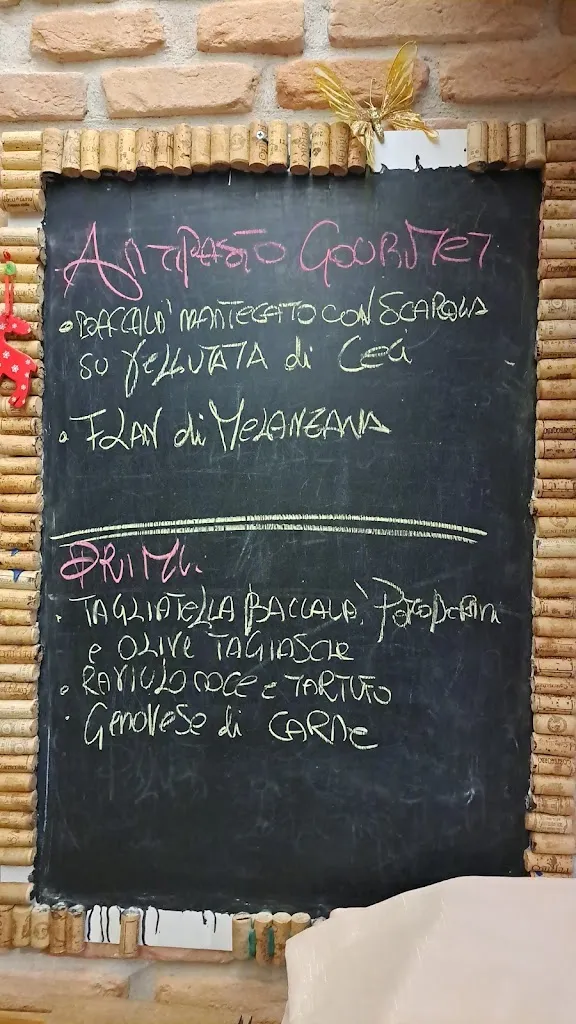 ANTIPASTO GOURMET
• BACCALA' MANTECATO CON SCAROLA
SU VELLUTATA di CECI
• FLAN di MELANZANA
PRIMI
• TAGLIATELLA BACCALA', POMODORINI
e OLIVE TAGIASCHE
• RAVIOLO NOCE e TARTUFO
• GENOVESE di CARNE